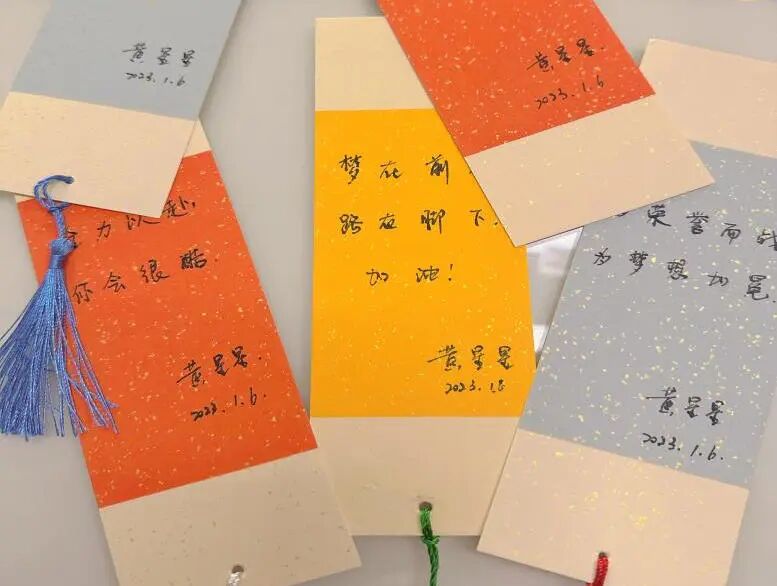 黄星星
2023.1.6
全力以赴,
你会很酷.
黄星星.
2023.1.6.
梦在前
路在脚下.
加油!
黄星星
2023.1.6
黄星星.
2023.1.6
荣誉而战
为梦想加冕
黄星星
2023.1.6.